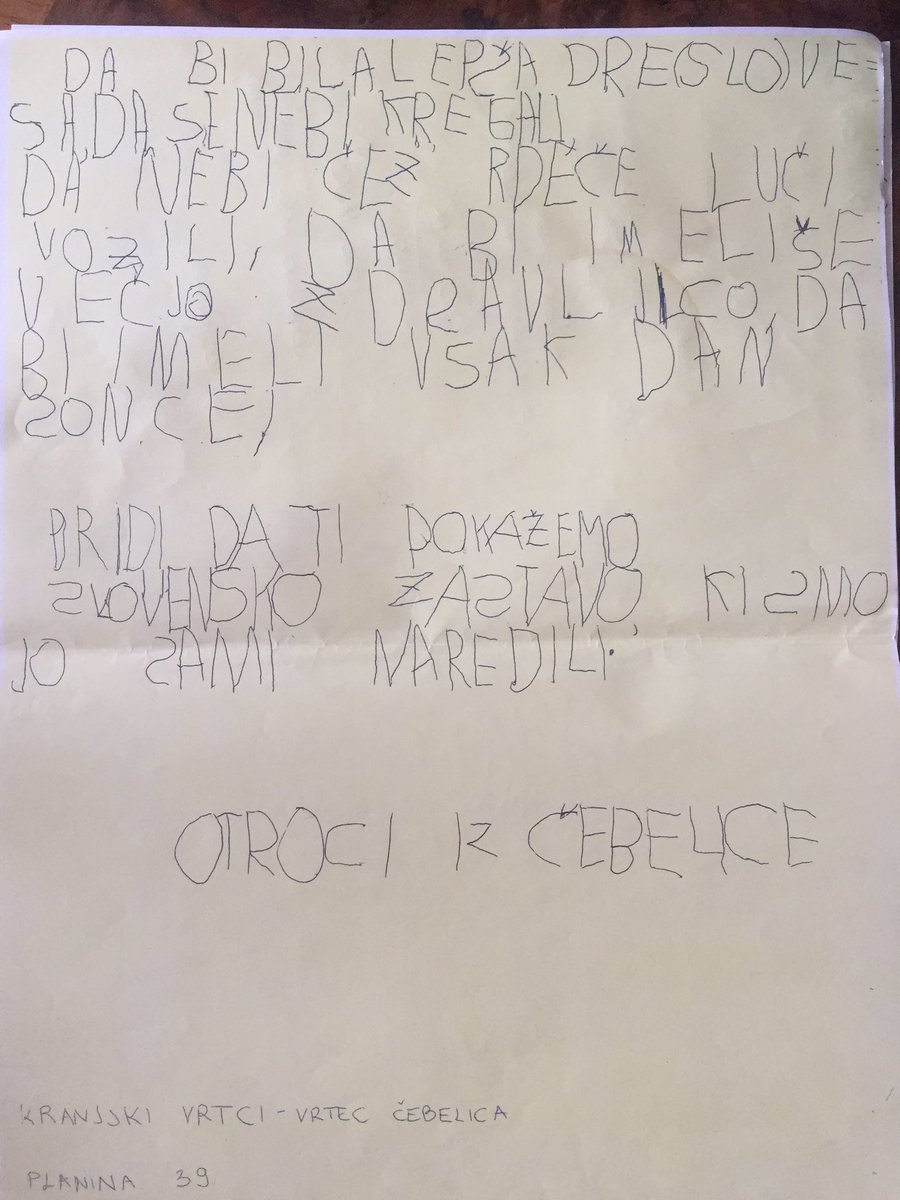 DA BI BILA LEPŠA DRE(SLO)VE=
SA, DA SE NEBI KREGALI,
DA NEBI ČEZ RDEČE LUČI
VOZILI, DA BI IMELI ŠE
VEČJO ZDRAVLJICO, DA
BI IMELI VSAK DAN
SONCE,
PRIDI DA TI POKAŽEMO
SLOVENSKO ZASTAVO, KI SMO
JO SAMI NAREDILI.
OTROCI IZ ČEBELICE
KRANJSKI VRTCI - VRTEC ČEBELICA
PLANINA 39